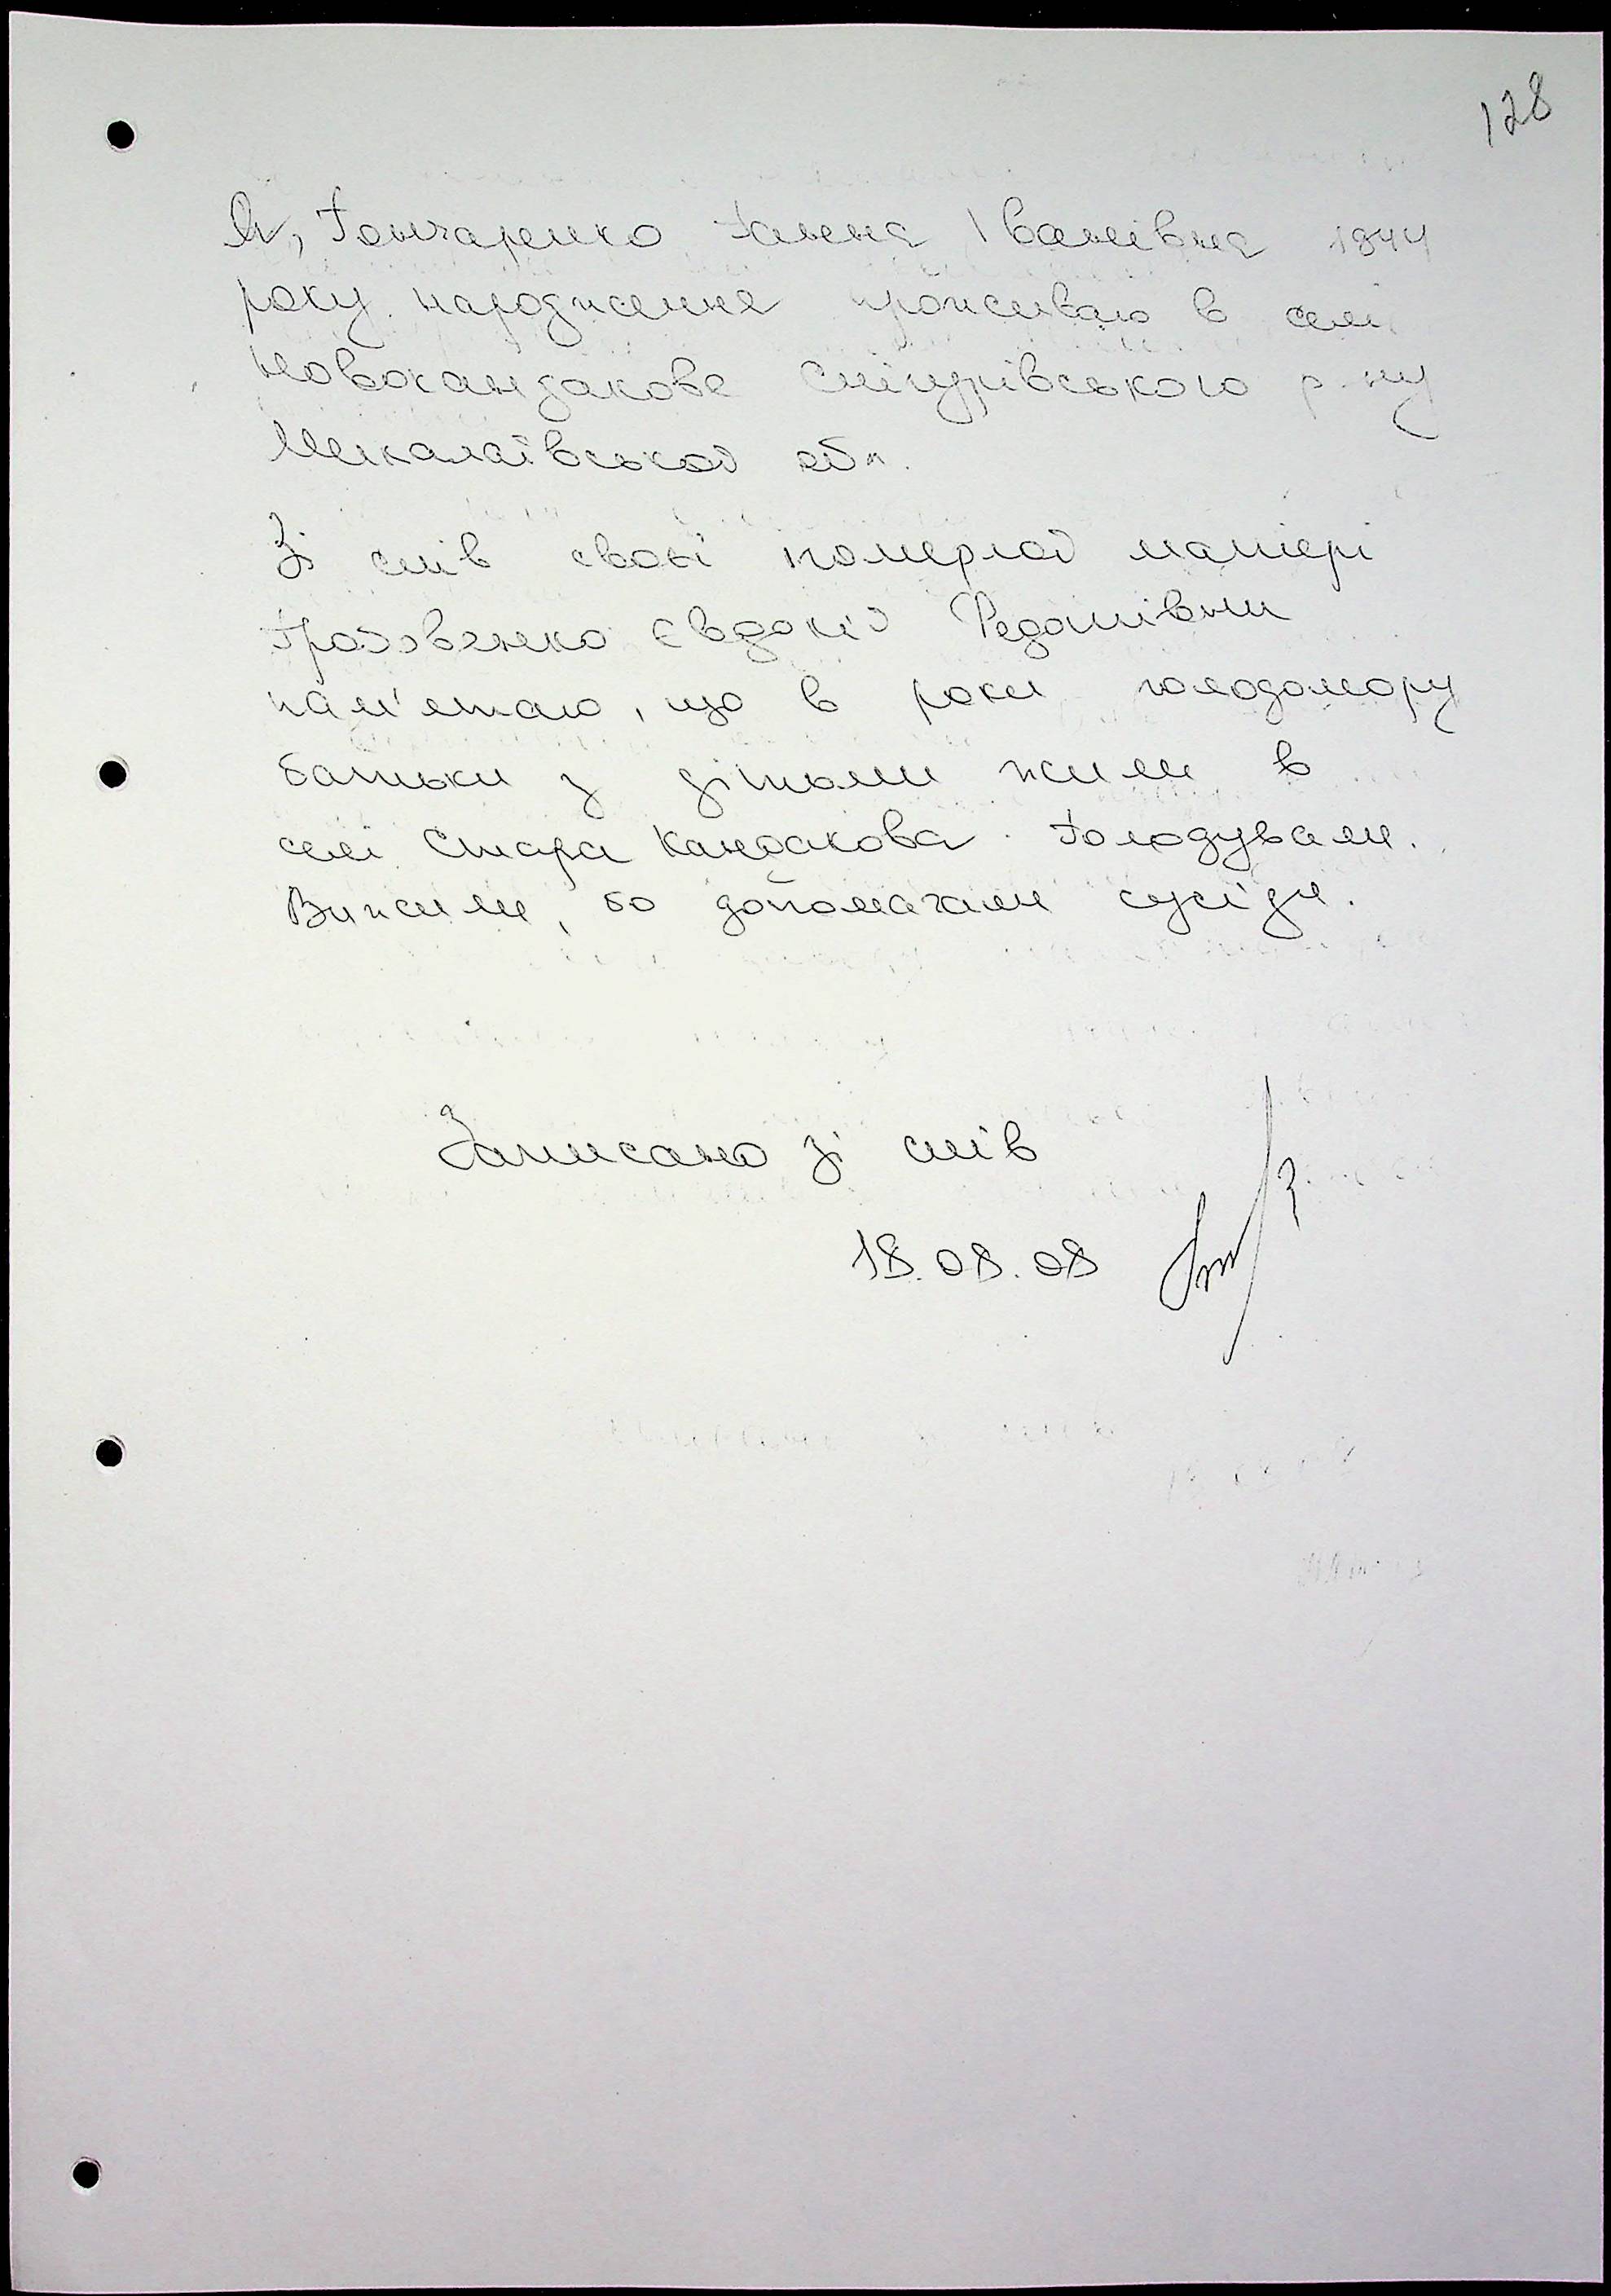 128
Я, Гончаренко Ганна Іванівна 1944
року народження проживаю в селі
Новокандакове Снігурівського р-ну
Миколаївської обл.
Зі слів своєї померлої матері
Євдокії Федотівни
пам'ятаю, що в роки голодомору
батьки з дітьми жили в
селі Стара Кандакова. Голодували.
Вижили, бо допомагали сусіди.
Записано зі слів
18.08.08